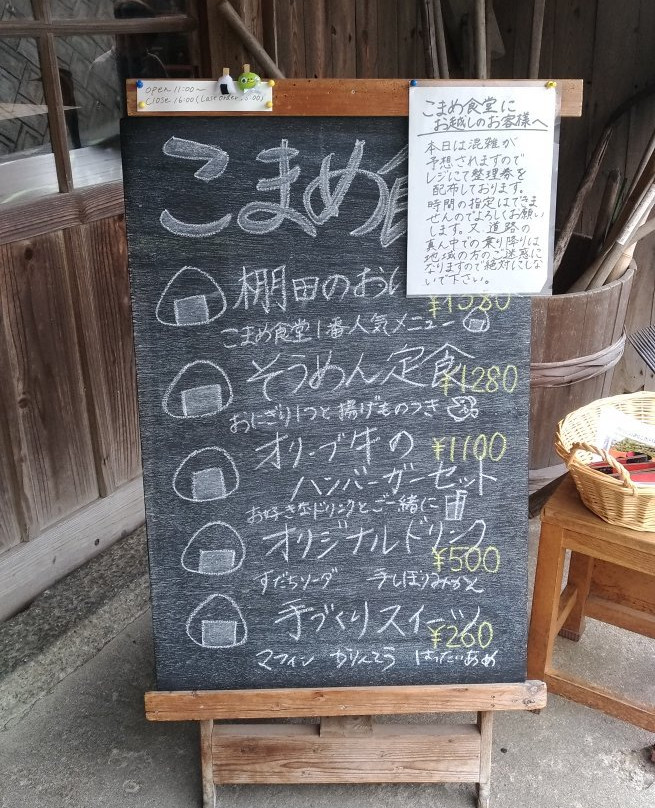 open 11:00~
close 16:00 (Last order 15:00)
こまめ食堂に
お越しのお客様へ
本日は混雑が
予想されますので
レジにて整理券を
配布しております。
時間の指定はできま
せんのでよろしくお願い
します。又、道路の
真ん中での乗り降りは
地域の方のご迷惑に
なりますので絶対にしな
いで下さい。
こまめ食
棚田のおに
¥1380
こまめ食堂1番人気メニュー
そうめん定食
¥1280
おにぎり1つと揚げものつき
オリーブ牛の
¥1100
ハンバーガーセット
お好きなドリンクとご一緒に
オリジナルドリンク
¥500
すだちソーダ 手しぼりみかん
手づくりスイーツ
¥260
マフィン かりんとう はったいあめ